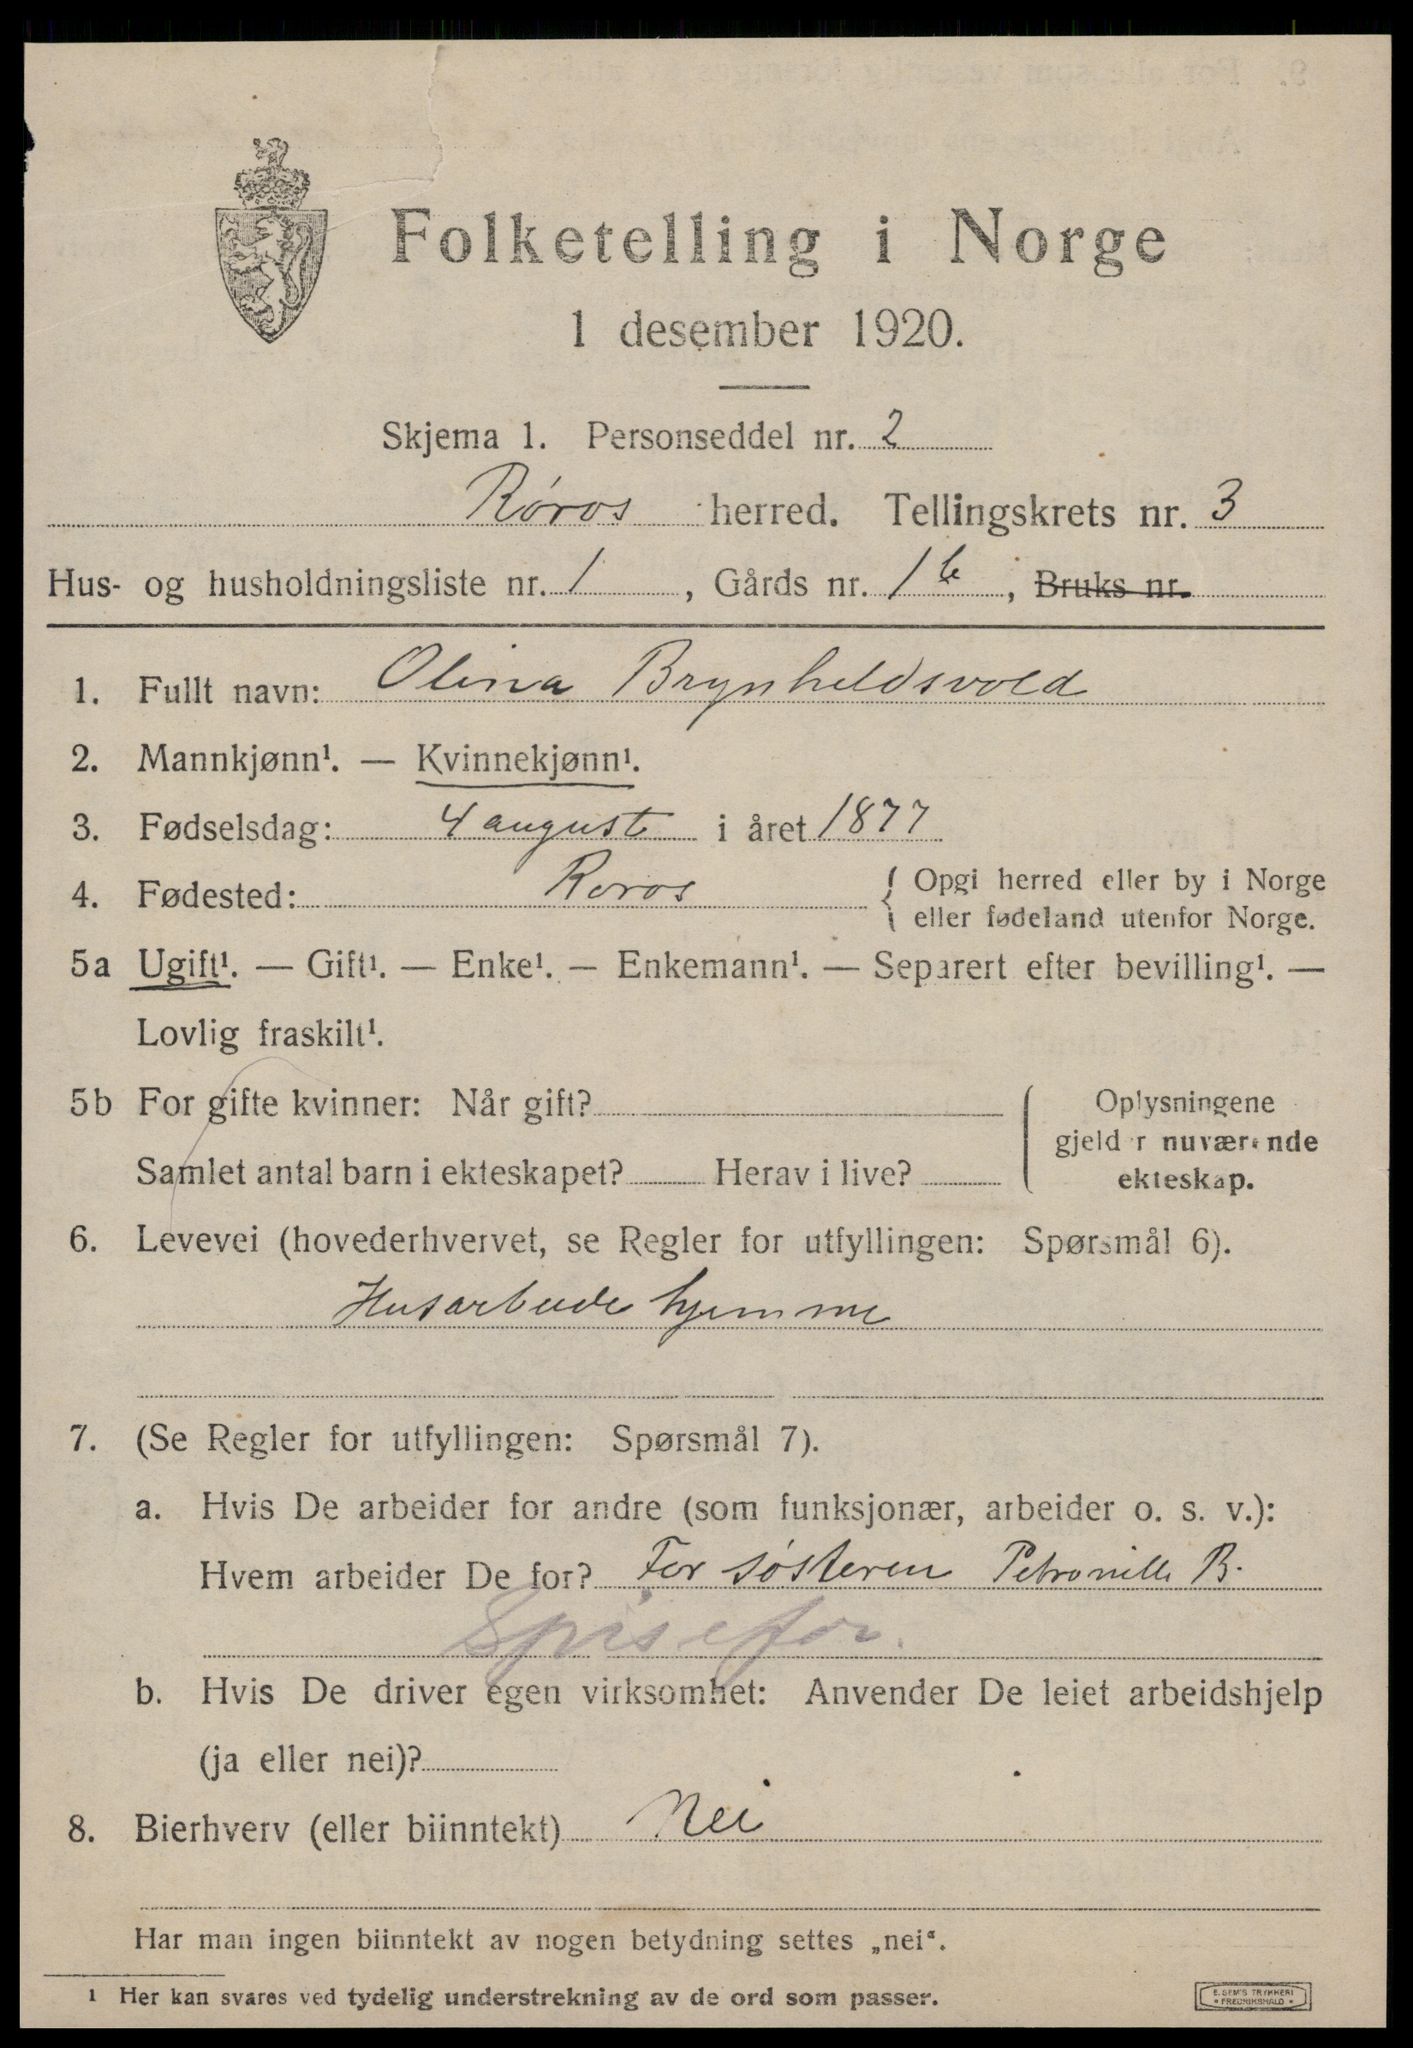 Folketelling i Norge
1 desember 1920.
Skjema 1. Personseddel nr. 2
Røros herred. Tellingskrets nr. 3
Hus- og husholdningsliste nr. 1, Gårds nr. 1 b, Bruks nr.
1. Fullt navn: Olina Brynheldsvold
2. Mannkjønn¹. — Kvinnekjønn¹.
3. Fødselsdag: 4 august i året 1877
4. Fødested: Roros { Opgi herred eller by i Norge
eller fødeland utenfor Norge.
5a Ugift¹. — Gift¹. — Enke¹. — Enkemann¹. — Separert efter bevilling¹. —
Lovlig fraskilt¹.
5b For gifte kvinner: Når gift?
Samlet antal barn i ekteskapet? Herav i live?
Oplysningene
gjelder nuværende
ekteskap.
6. Levevei (hovederhvervet, se Regler for utfyllingen: Spørsmål 6).
Husarbeide hjemme
7. (Se Regler for utfyllingen: Spørsmål 7).
a. Hvis De arbeider for andre (som funksjonær, arbeider o. s. v.):
Hvem arbeider De for? For søsteren Petronille B.
Spisefor.
b. Hvis De driver egen virksomhet: Anvender De leiet arbeidshjelp
(ja eller nei)?
8. Bierhverv (eller biinntekt) Nei
Har man ingen biinntekt av nogen betydning settes „nei“.
1 Her kan svares ved tydelig understrekning av de ord som passer.
E. SEM'S TRYKKERI
• FREDRIKSHALD •